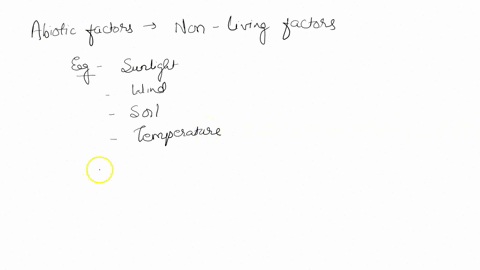 Abiotic factors → Non-living factors
Eg - Sunlight
- Wind
- Soil
- Temperature